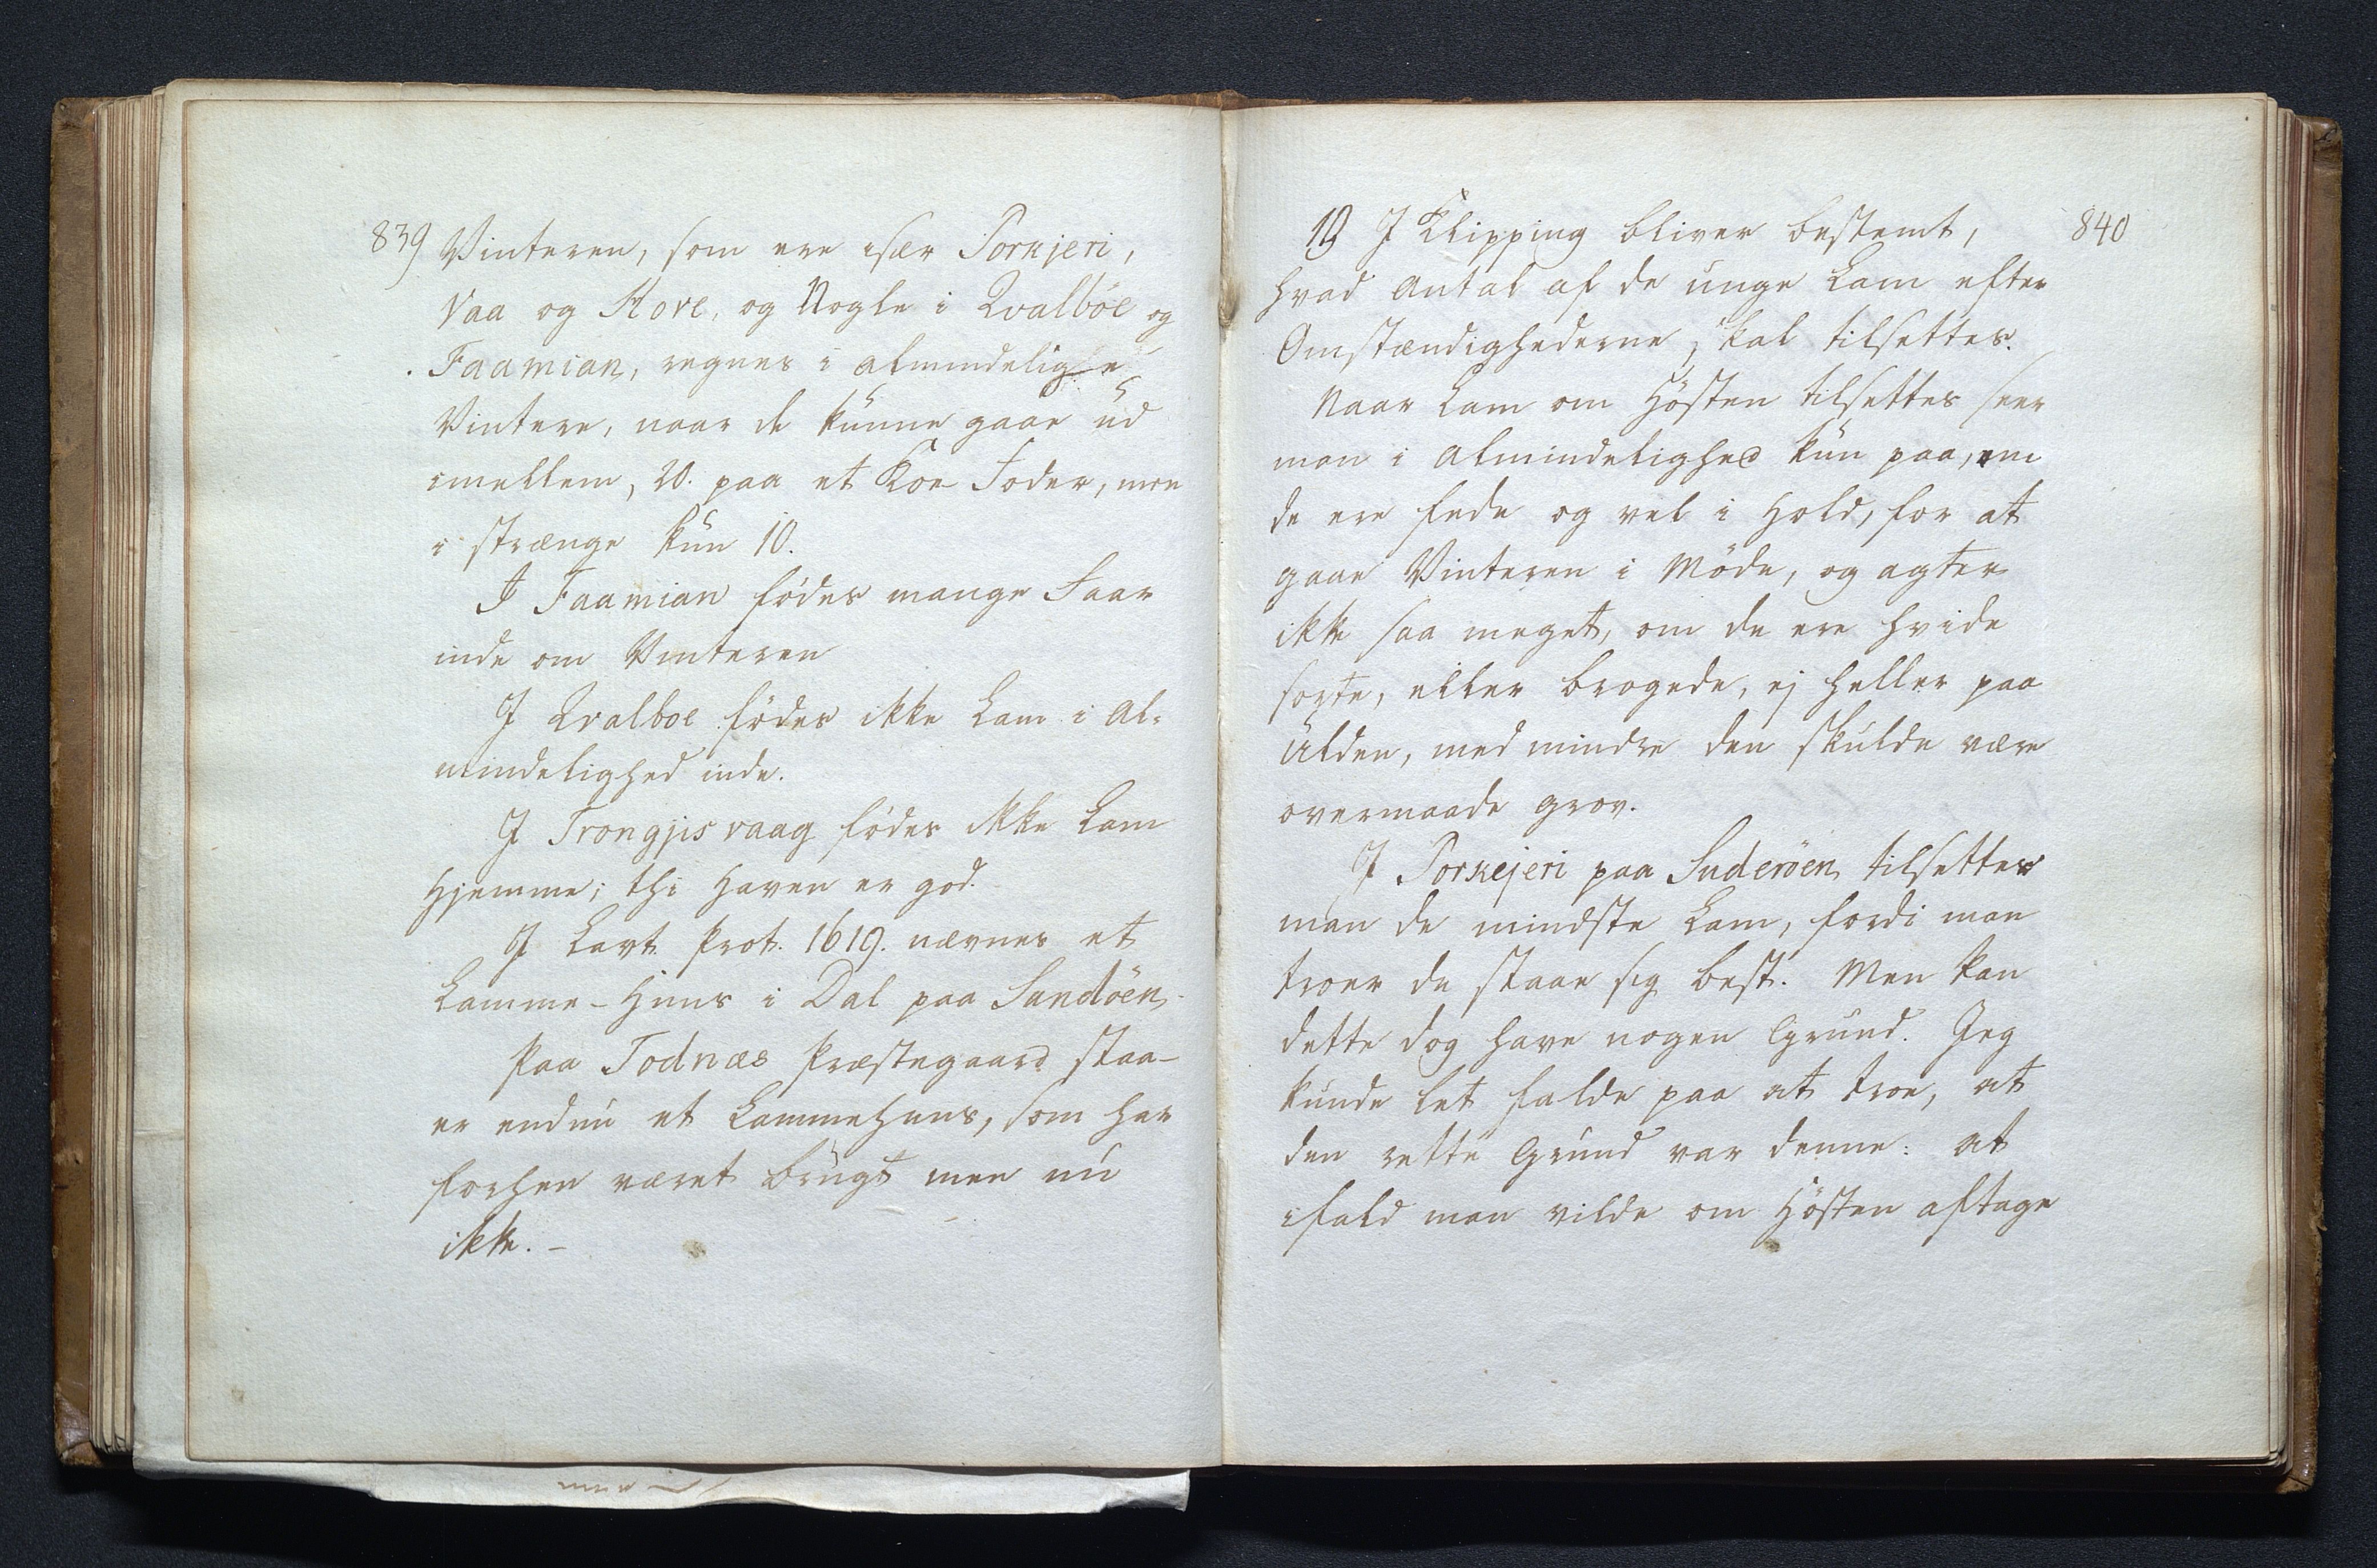 839
Vinteren, som ere især Porkjeri,
Vaa og Hove, og Nogle i Qvalböe og
Faamian, regnes i almindelige
Vintere, naar de kunne gaae ud
imellem, 20. paa et Koe Foder, men
i strænge kun 10.
I Faamian födes mange Faar
inde om Vinteren
I Qvalboe födes ikke Lam i Al-
mindelighed inde.
I Trongjisvaag födes ikke Lam
hjemme; thi Haven er god.
I Lavt. Prot. 1619. nævnes et
Lamme-Huus i Dal paa Sandöen.
Paa Todnæs Præstegaard staa-
er endnu et Lammehuus, som har
forhen været brugt men nu
ikke. -
840
I Klipping bliver bestemt,
hvad Antal af de unge Lam efter
Omstændighederne skal tilsettes.
Naar Lam om Hösten tilsettes seer
man i Almindelighed kun paa, om
de ere fede og vel i Hold, for at
gaae Vinteren i Möde, og agter
ikke saa meget, om de ere hvide
sorte, eller brogede, ej heller paa
Ulden, med mindre den skulde være
overmaade grov.
I Porkejeri paa Suderöen tilsetter
man de mindste Lam, fordi man
troer de staae sig best. Men kan
dette dog have nogen Grund. Jeg
kunde let falde paa at troe, at
den rette Grund var denne: at
ifald man vilde om Hösten aftage